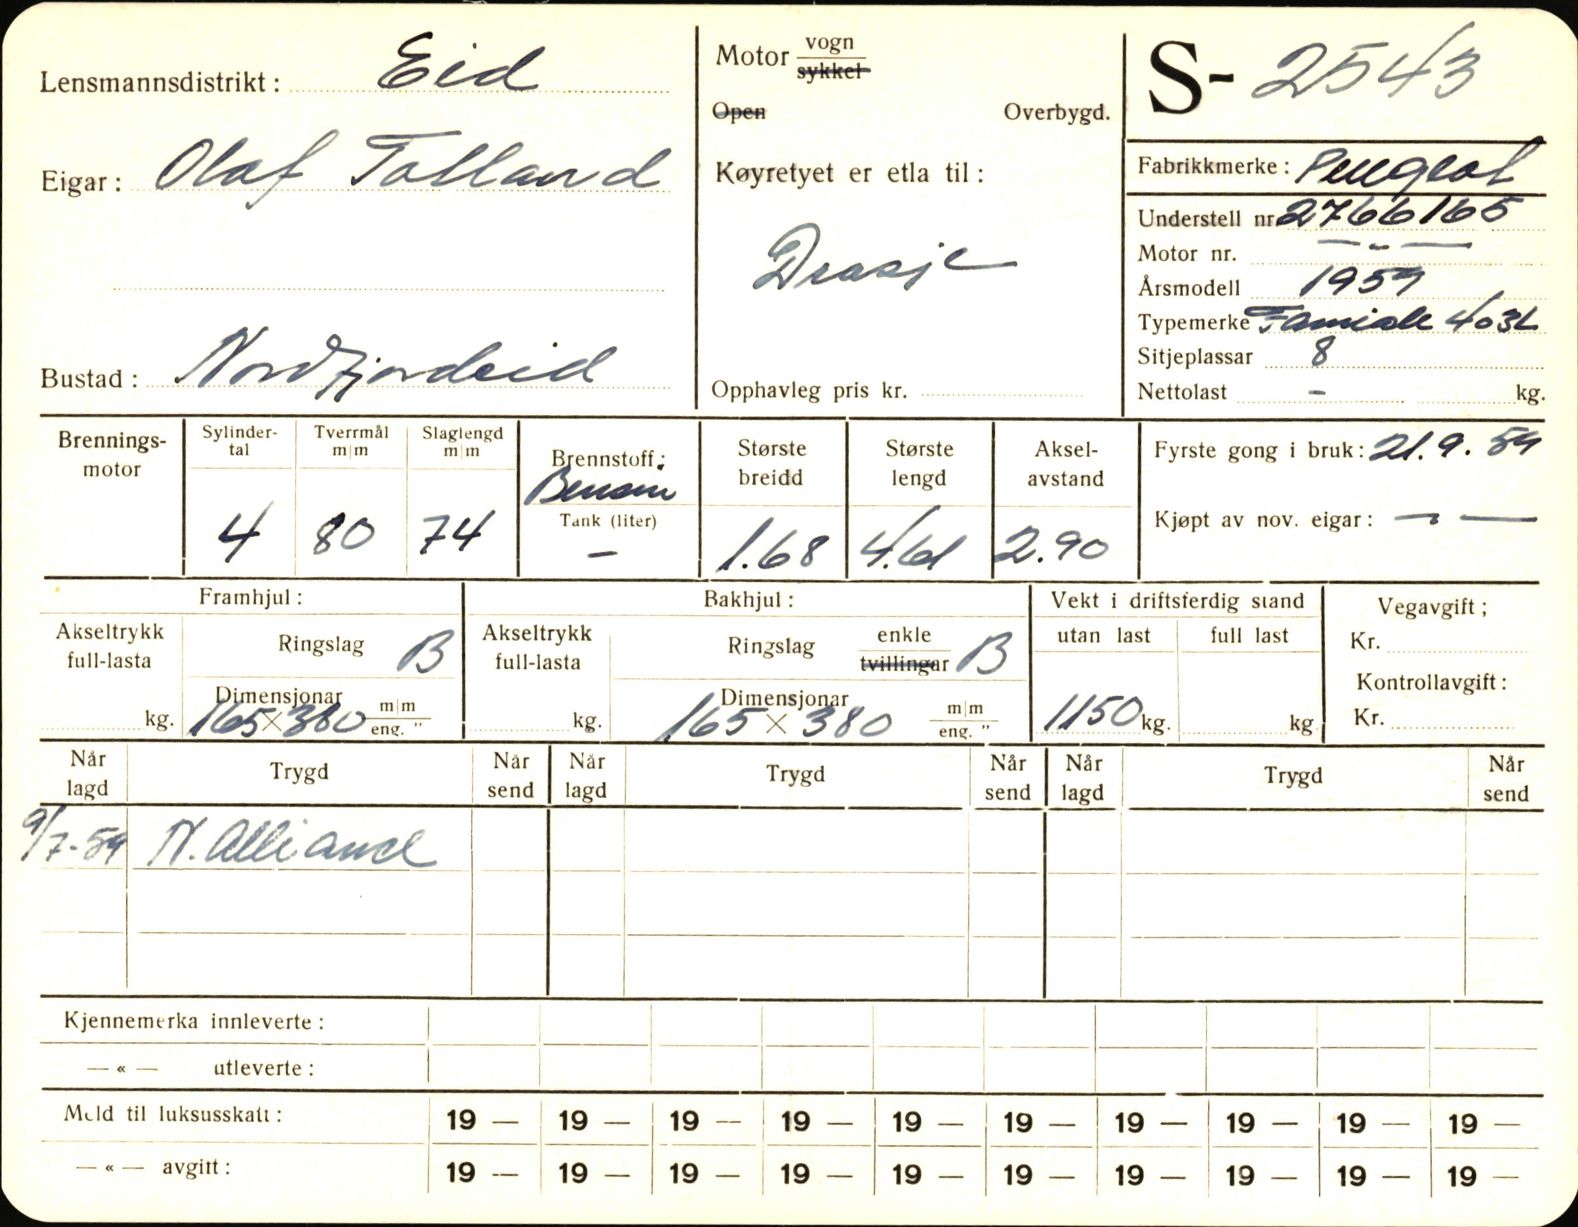 Lensmannsdistrikt: Eid
Eigar: Olaf Tolland
Bustad: Nordfjordeid
Motor vogn
sykkel
Open Overbygd.
Køyretyet er etla til:
Drosje
Opphavleg pris kr.
S- 2543
Fabrikkmerke: Peugeot
Understell nr. 2766165
Motor nr. — " —
Årsmodell 1959
Typemerke Familale 403L
Sitjeplassar 8
Nettolast - kg.
Brennings-
motor
Sylinder-
tal
4
Tverrmål
m|m
80
Slaglengd
m|m
74
Brennstoff;
Bensin
Tank (liter)
-
Største
breidd
1.68
Største
lengd
4.61
Aksel-
avstand
2.90
Fyrste gong i bruk: 21.9.59
Kjøpt av nov. eigar: — " —
Framhjul:
Akseltrykk
full-lasta
kg.
Ringslag B
Dimensjonar
165 × 380 m|m
eng. "
Bakhjul:
Akseltrykk
full-lasta
kg.
Ringslag enkle
tvillingar B
Dimensjonar
165 × 380 m|m
eng. "
Vekt i driftsferdig stand
utan last full last
1150 kg. kg
Vegavgift;
Kr.
Kontrollavgift:
Kr.
Når
lagd Trygd Når
send Når
lagd Trygd Når
send Når
lagd Trygd Når
send
9/7-59 N. Alliance
Kjennemerka innleverte:
— « — utleverte:
Meld til luksusskatt: 19 — 19 — 19 — 19 — 19 — 19 — 19 — 19 — 19 — 19 —
— « — avgift: 19 — 19 — 19 — 19 — 19 — 19 — 19 — 19 — 19 — 19 —